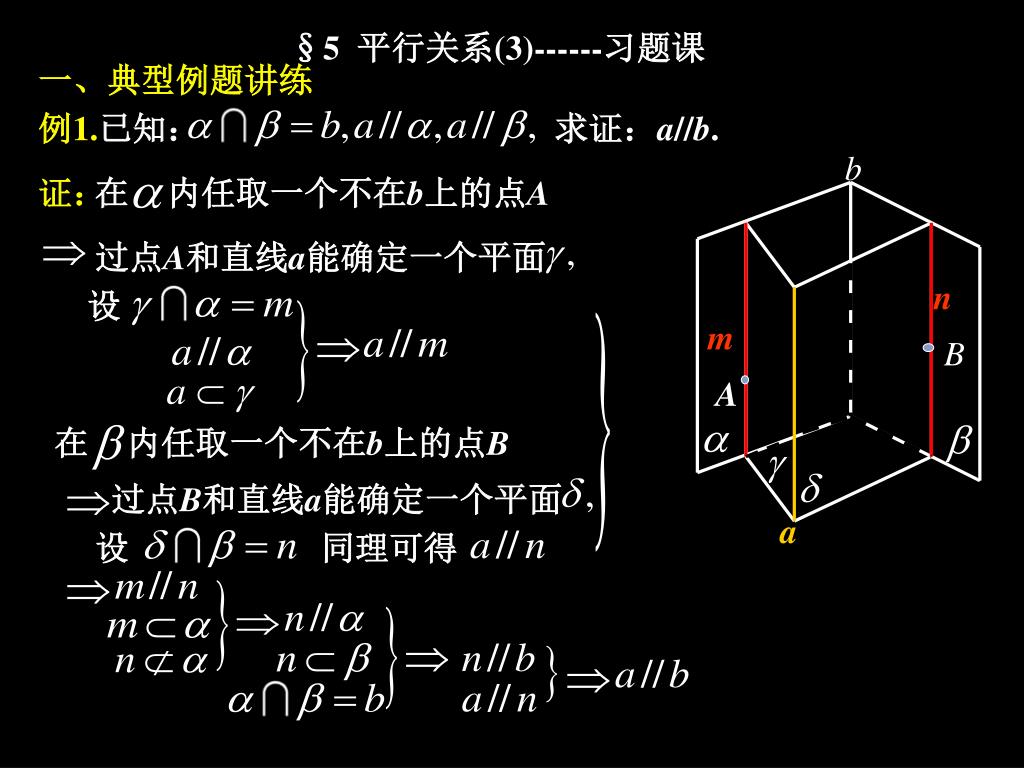 §5 平行关系(3)------习题课
一、典型例题讲练
例1.已知：α∩β=b,a//α,a//β, 求证：a//b.
证：在α内任取一个不在b上的点A
⇒ 过点A和直线a能确定一个平面γ,
设 γ∩α=m
a//α
a⊂γ
⇒a//m
在β内任取一个不在b上的点B
⇒过点B和直线a能确定一个平面δ,
设 δ∩β=n 同理可得 a//n
⇒m//n
m⊂α
n⊄α
⇒n//α
n⊂β
α∩β=b
⇒ n//b
a//n
⇒a//b
b
n
m
B
A
α
β
γ
δ
a